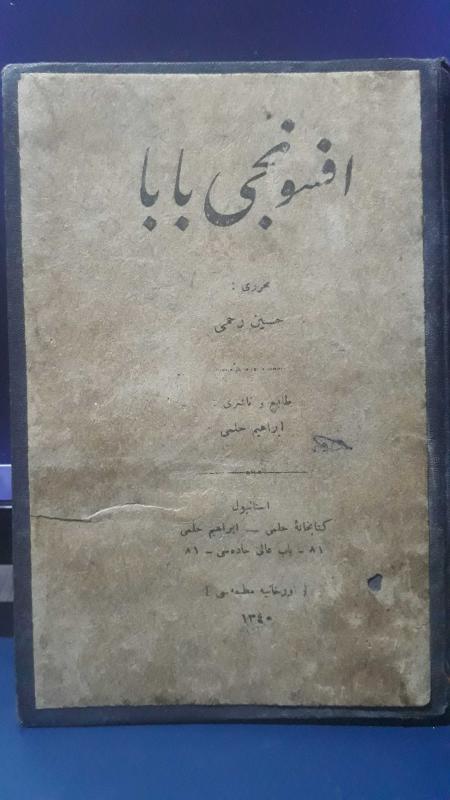 افسونجی بابا
محرری :
حسین رحمی
طابع و ناشری
ابراهیم حلمی
استانبول
كتابخانهٔ حلمی — ابراهیم حلمی
٨١ - باب عالی جاده‌سی - ٨١
[ اورخانیه مطبعه‌سی ]
١٣٤٠